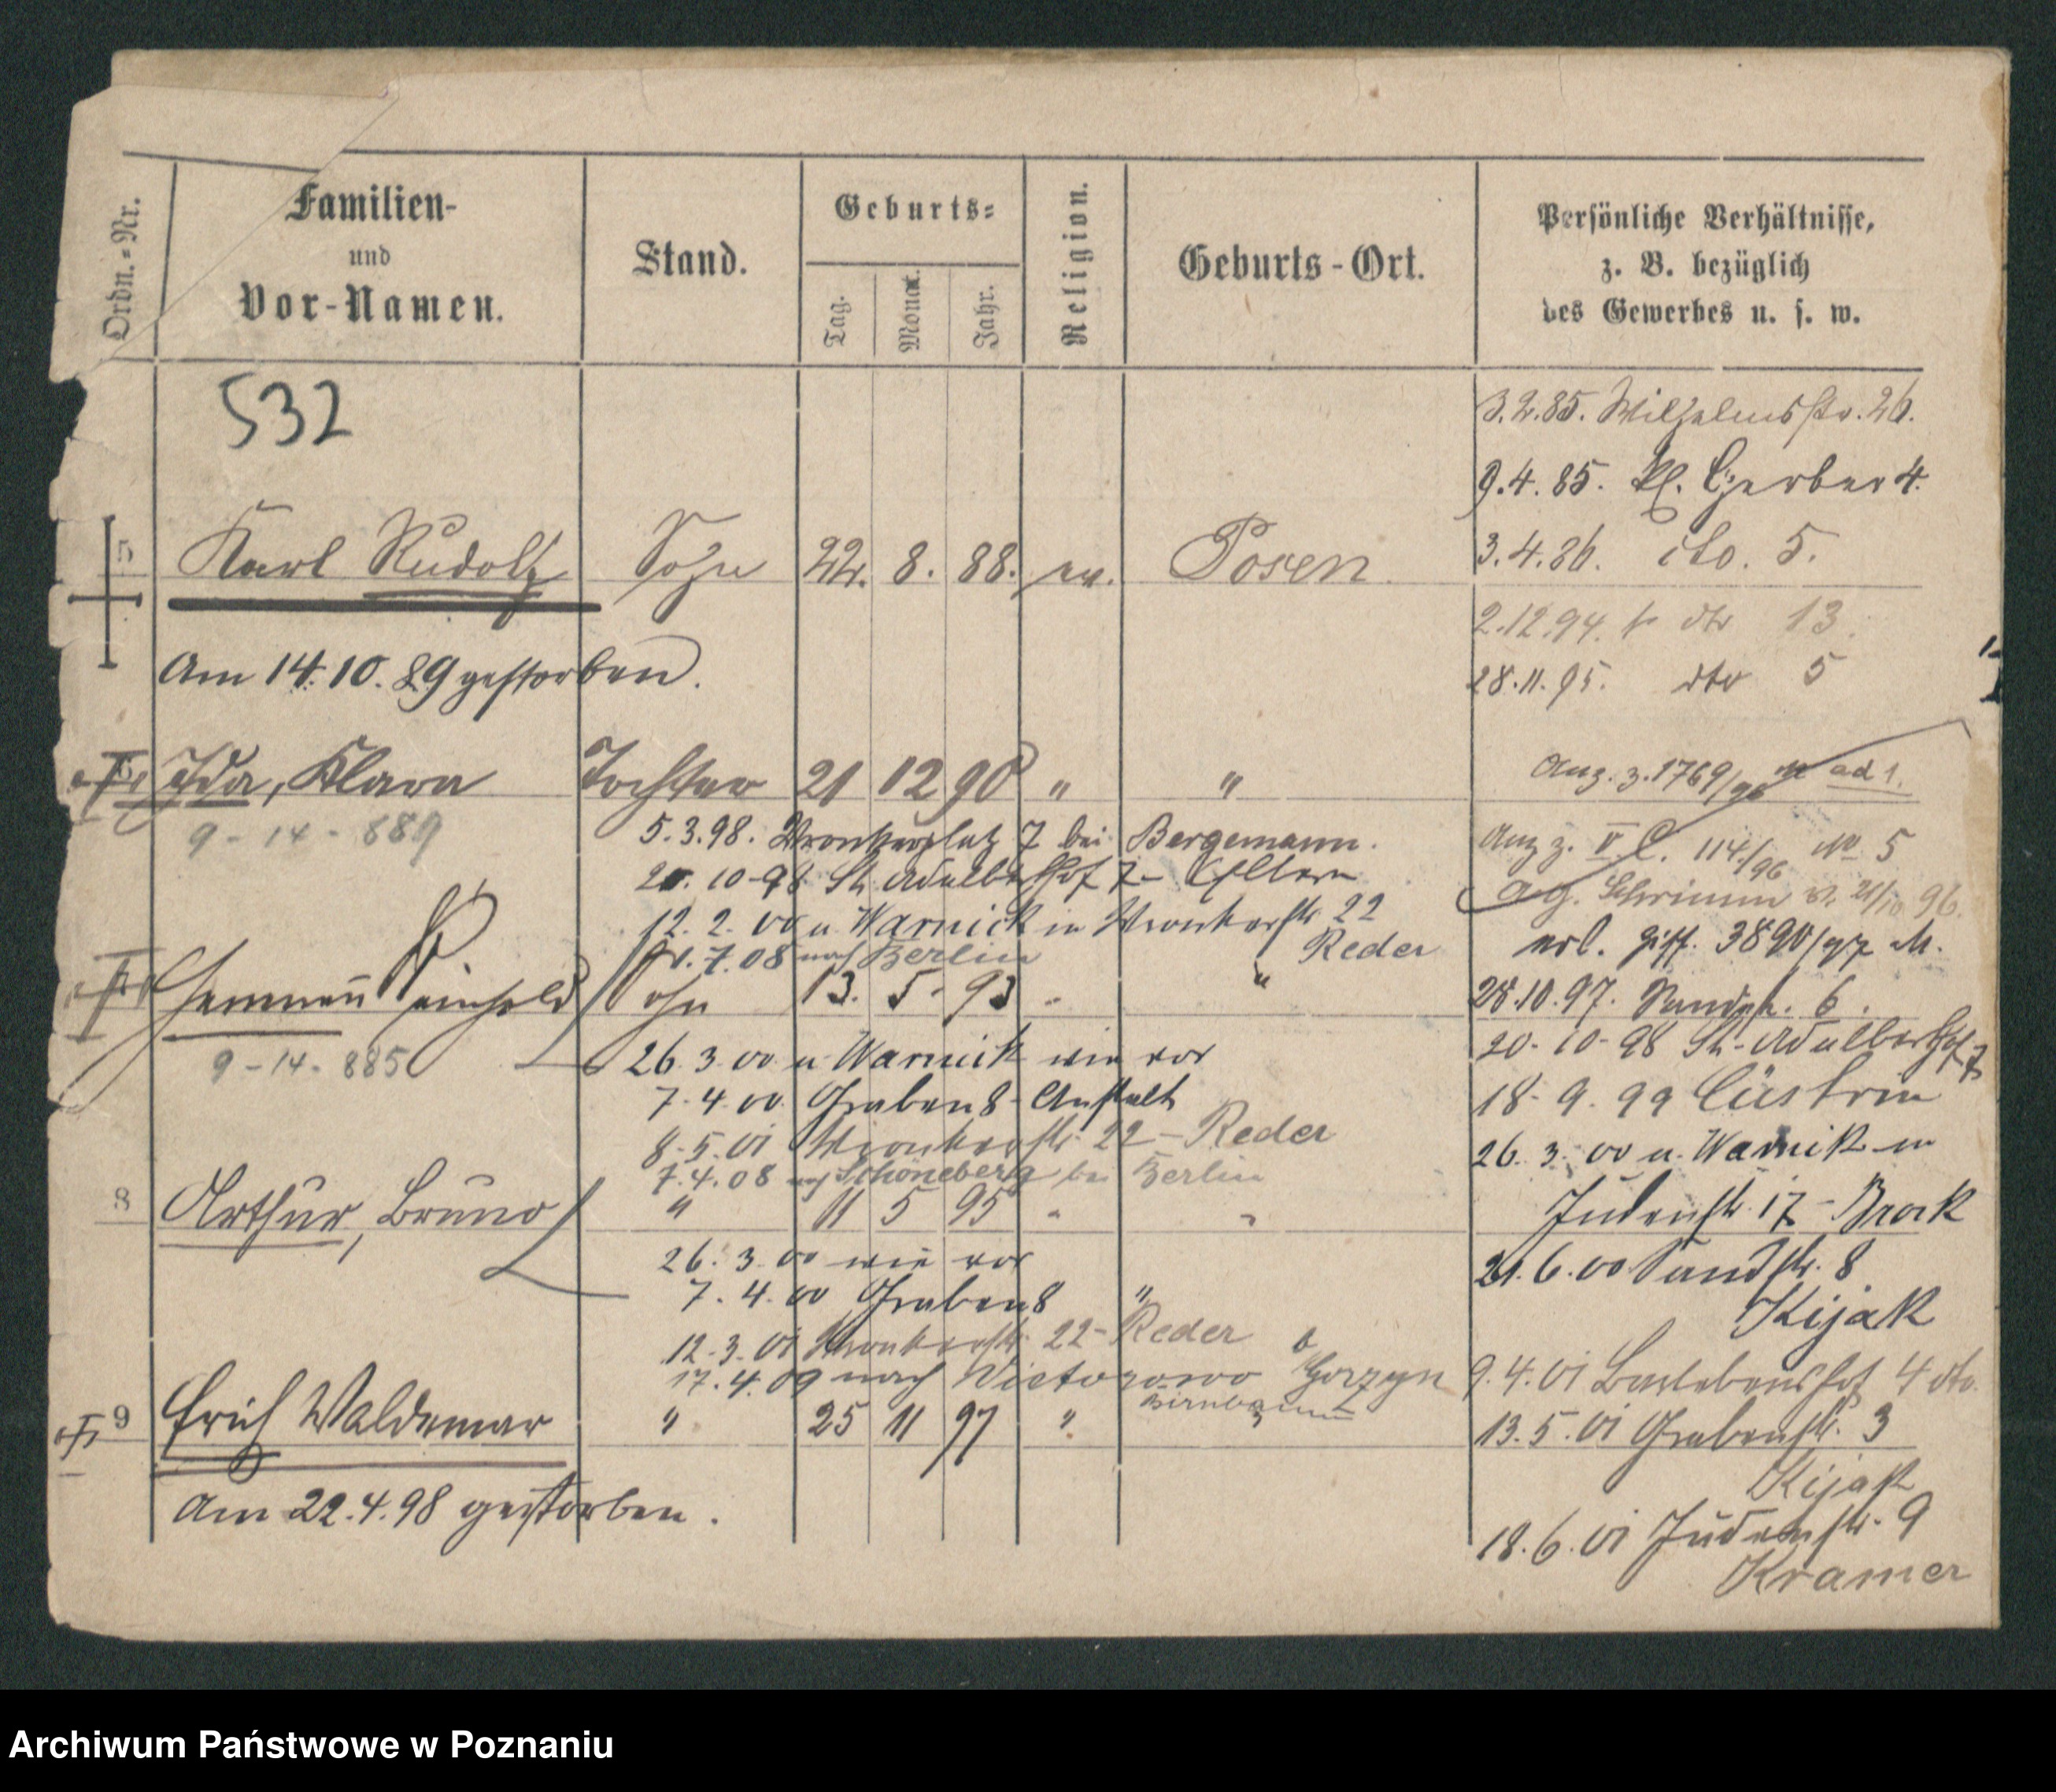 Ordn.-Nr.
Familien-
und
Vor-Namen.
Stand.
Geburts-
Tag.
Monat.
Jahr.
Religion.
Geburts-Ort.
Persönliche Verhältnisse,
z. B. bezüglich
des Gewerbes u. s. w.
532
5 Karl Rudolf Sohn 22. 8. 88. ev. Posen.
Am 14.10.89 gestorben.
6 Ida, Klara Tochter 21 12 90 " "
9-14-889
5.3.98. Wronkerplatz 7 bei Bergemann.
20.10.98 St. Adalberthof 7 - Eltern
12.2.00 u. Warnick in Wronkerstr. 22
Reder
1.7.08 nach Berlin
Hermann Reinhold Sohn 13. 5. 93 " "
9-14-885
26.3.00 u. Warnick wie vor
7.4.00 Graben 8 - Anstalt
8.5.01 Wronkerstr. 22 - Reder
7.4.08 nach Schöneberg bei Berlin
8 Arthur, Bruno " 11 5 95 " "
26.3.00 wie vor
7.4.00 Graben 8 "
12.3.01 Wronkerstr. 22 - Reder
17.4.09 nach Victorowo b Gorzyn
Birnbaum
9 Erich Waldemar " 25 11 97 " "
Am 22.4.98 gestorben.
3.2.85. Wilhelmsstr. 26.
9.4.85. kl. Gerber 4.
3.4.86. dto. 5.
2.12.94. dto 13.
28.11.95. dto 5
Anz. z. 1769/96 ad 1.
Anz z. II C. 114/96 No 5
Ag. Schrimm v. 21/10 96.
erl. 3890/97 M.
28.10.97. Sandstr. 6.
20.10.98 St. Adalberthof 7
18.9.99 Cüstrin
26.3.00 u. Warnik in
Judenstr. 17 - Brock
21.6.00 Sandstr. 8
Kijak
9.4.01 Barlebenshof 4 dto.
13.5.01 Grabenstr. 3
Kijak
18.6.01 Judenstr. 9
Kramer
Archiwum Państwowe w Poznaniu